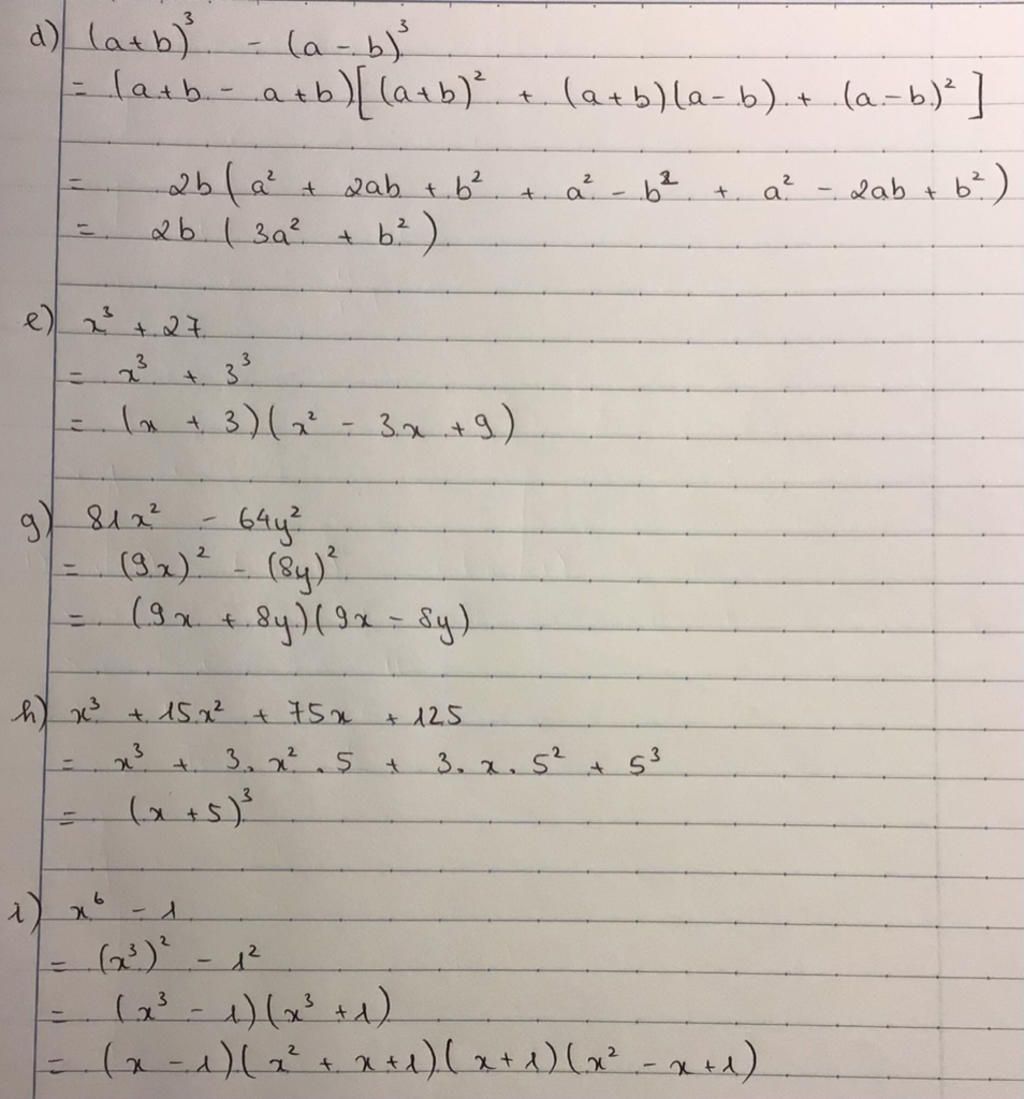 d) (a+b)³ - (a-b)³
= (a+b - a+b)[(a+b)² + (a+b)(a-b) + (a-b)²]
= 2b(a² + 2ab + b² + a² - b² + a² - 2ab + b²)
= 2b (3a² + b²)
e) x³ + 27
= x³ + 3³
= (x + 3)(x² - 3x + 9)
g) 81x² - 64y²
= (9x)² - (8y)²
= (9x + 8y)(9x - 8y)
h) x³ + 15x² + 75x + 125
= x³ + 3.x².5 + 3.x.5² + 5³
= (x+5)³
i) x⁶ - 1
= (x³)² - 1²
= (x³ - 1)(x³ + 1)
= (x - 1)(x² + x + 1)(x + 1)(x² - x + 1)